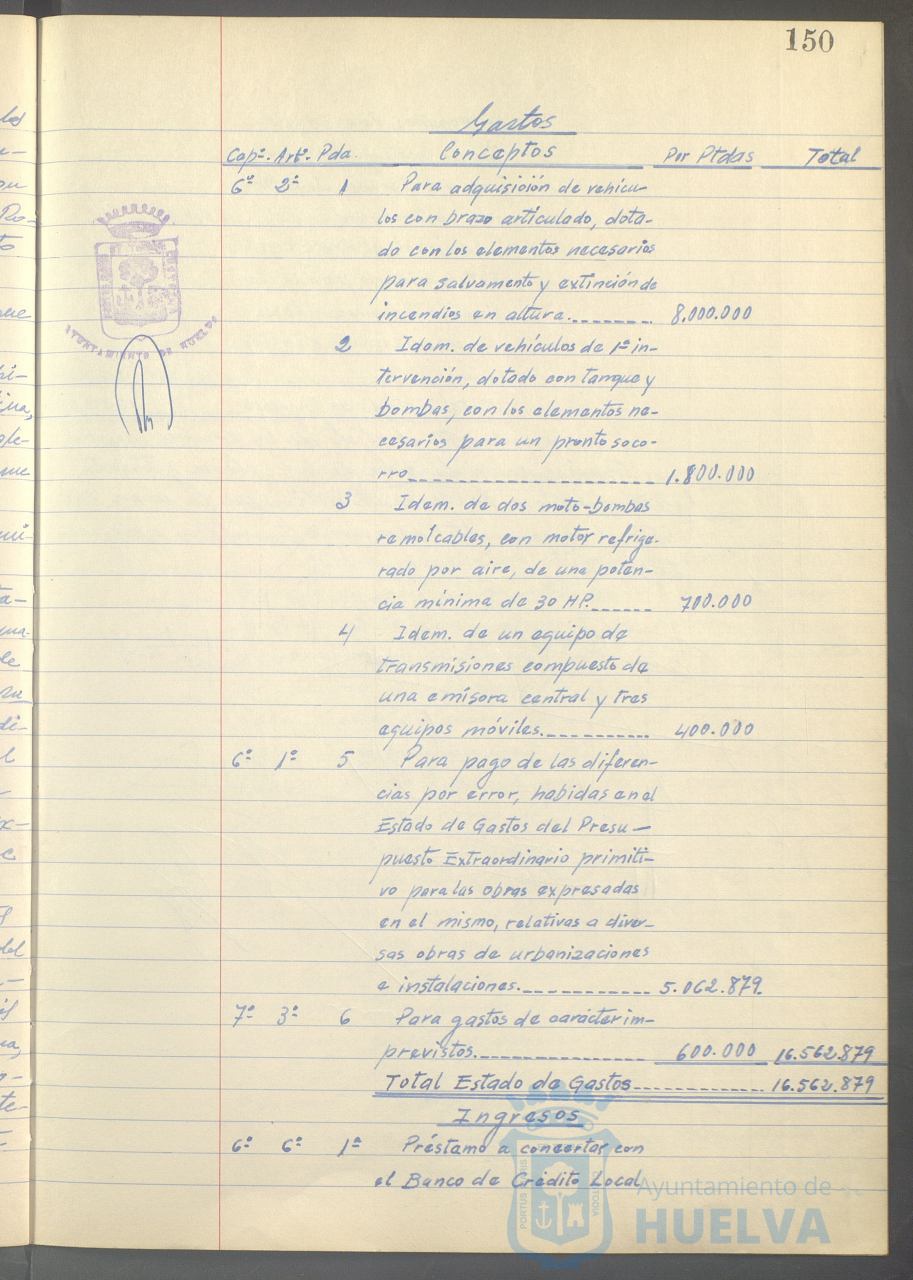 150
Gastos
Capº. Artº. Pda. Conceptos Por Ptdas Total
6º 2º 1 Para adquisición de vehícu-
los con brazo articulado, dota-
do con los elementos necesarios
para salvamento y extinción de
incendios en altura. 8.000.000
2 Idem. de vehículos de 1ª in-
tervención, dotado con tanque y
bombas, con los elementos ne-
cesarios para un pronto soco-
rro 1.800.000
3 Idem. de dos moto-bombas
remolcables, con motor refrige-
rado por aire, de una poten-
cia mínima de 30 HP. 700.000
4 Idem. de un equipo de
transmisiones compuesto de
una emisora central y tres
equipos móviles. 400.000
6º 1º 5 Para pago de las diferen-
cias por error, habidas en el
Estado de Gastos del Presu-
puesto Extraordinario primiti-
vo para las obras expresadas
en el mismo, relativas a diver-
sas obras de urbanizaciones
e instalaciones. 5.062.879.
7º 3º 6 Para gastos de carácter im-
previstos. 600.000 16.562.879
Total Estado de Gastos 16.562.879
Ingresos
6º 6º 1ª Préstamo a concertar con
el Banco de Crédito Local
AYUNTAMIENTO DE HUELVA
PORTUS MARIS CUSTODIA
Ayuntamiento de
HUELVA